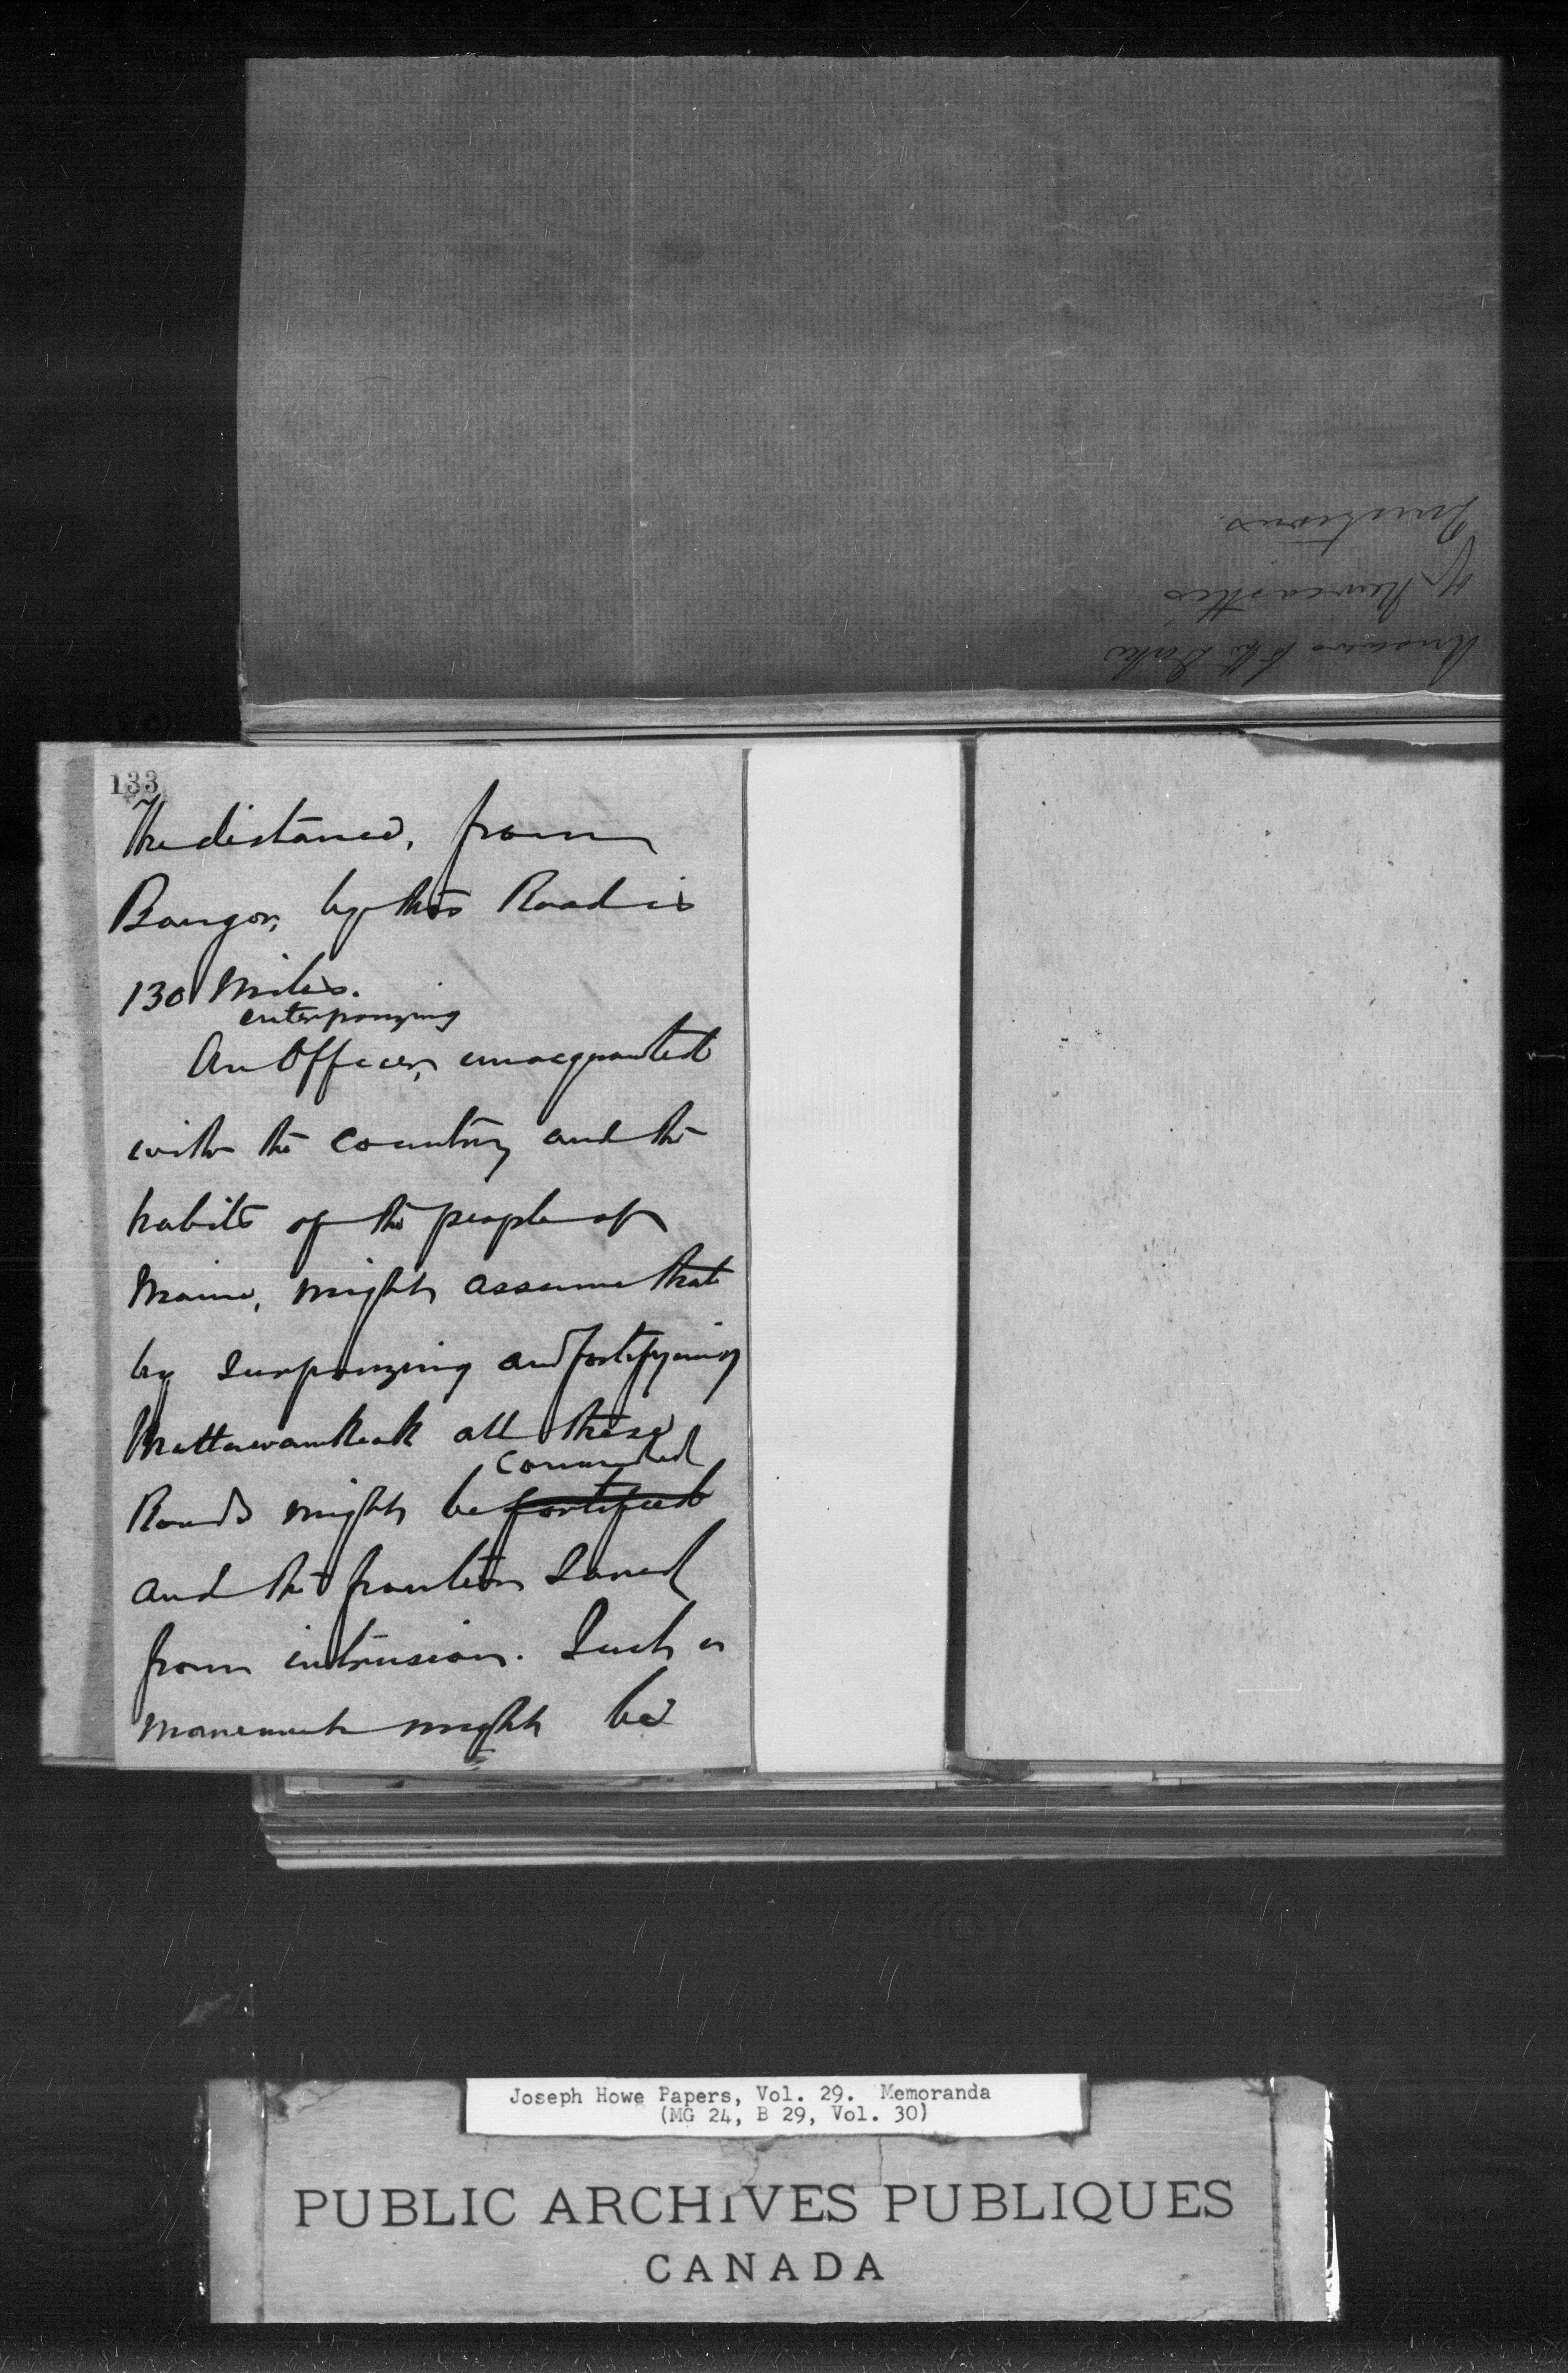 Answers to the Duke
of Newcastle's
Questions.
133
The distance, from
Bangor, by this Road is
130 Miles.
enterprizing
An Officer, unacquainted
with the Country and the
habits of the people of
Maine, might assume that
by surprizing and fortifying
Mattawamkeak all these
commanded
Roads might be fortified
and the frontier saved
from intrusion. Such a
movement might be
Joseph Howe Papers, Vol. 29. Memoranda
(MG 24, B 29, Vol. 30)
PUBLIC ARCHIVES PUBLIQUES
CANADA